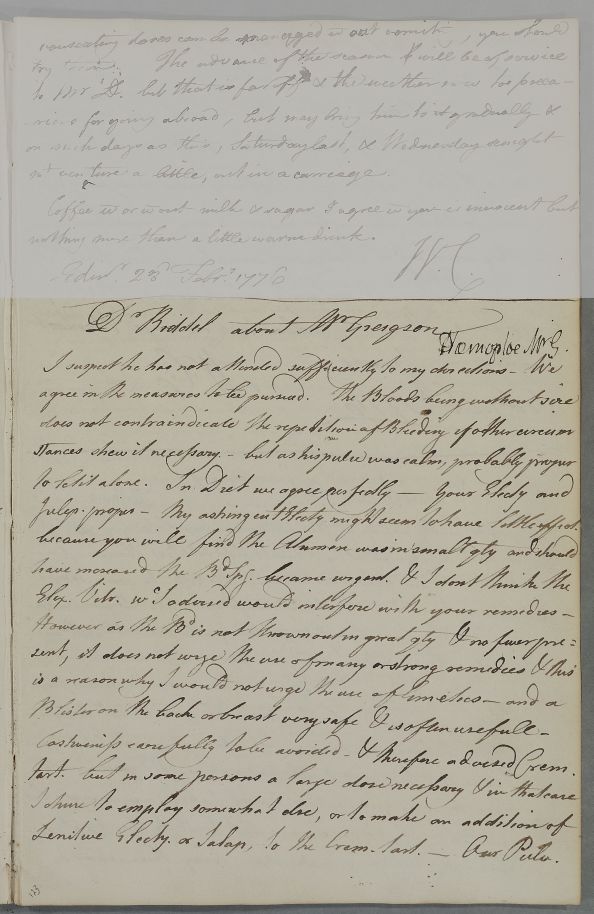 nauseating doses can be managed wout vomitg, you should
try them. The advance of the season will be of service
to Mr D. but that is far off & the weather now too preca-
rious for going abroad, but may bring him to it gradually &
on such days as this, Saturday last, & Wednesday sennight
mt venture a little, but in a carriage.
Coffee w or wout milk & sugar I agree w you is innocent but
nothing more than a little warm drink.
W. C.
Edinr. 23d Febr. 1776
Dr Riddel about Mr Gregson
Haemoptoe Mr G.
I suspect he has not attended sufficiently to my directions - We
agree in the measures to be pursued. The Bloods being without size
does not contraindicate the repetition of Bleeding if other circum
stances shew it necessary - but as his pulse was calm, probably proper
to let it alone. In Diet we agree perfectly — Your Electy and
Julep. proper - My astringent Electy might seem to have little effect
because you will find the Alumen was in small qty and should
have increased the Bd Spg. became urgent. & I dont think the
Elix. Vitr. wc I advised would interfere with your remedies -
However as the Bd is not thrown out in great qty & no fever pre=
sent, it does not urge the use of many or strong remedies & this
is a reason why I would not urge the use of emetics - and a
Blister on the back or breast very safe & is often usefull -
Costiveness carefully to be avoided - & therefore advised Crem.
tart. but in some persons a large dose necessary & in that case
I chuse to employ somewhat else, or to make an addition of
Lenitive Electy. or Jalap, to the Crem. tart. — Our Pulv.